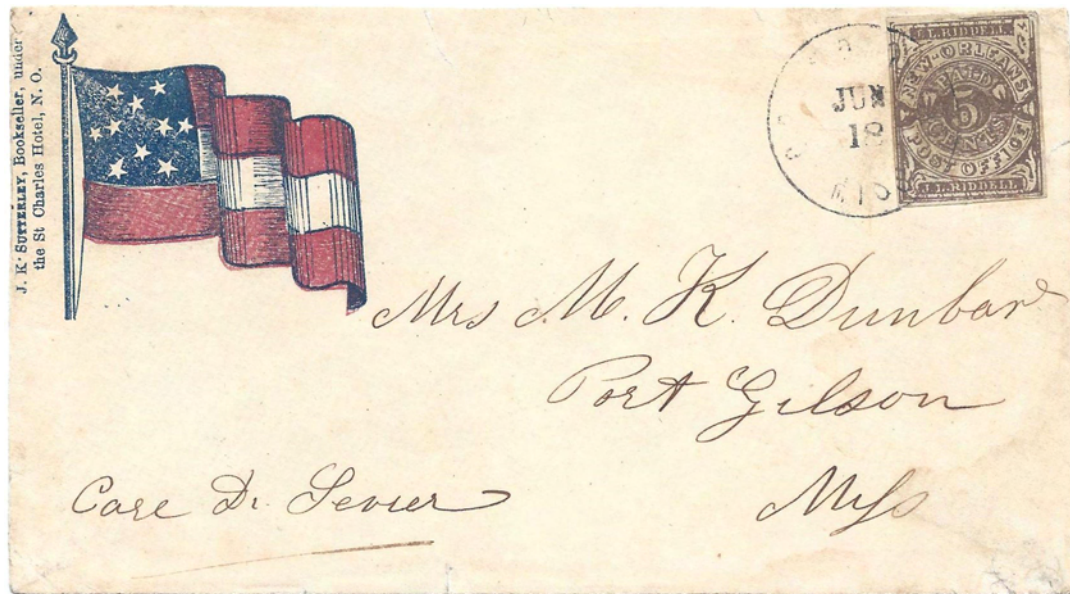 J. K. SUTTERLEY, Bookseller, under
the St Charles Hotel, N. O.
JUN
18
MISS
J. L. RIDDELL
NEW-ORLEANS
PAID
5
CENTS
POST OFFICE
J. L. RIDDELL
Mrs M. K. Dunbar
Port Gilson
Miſs
Care Dr. Sevier